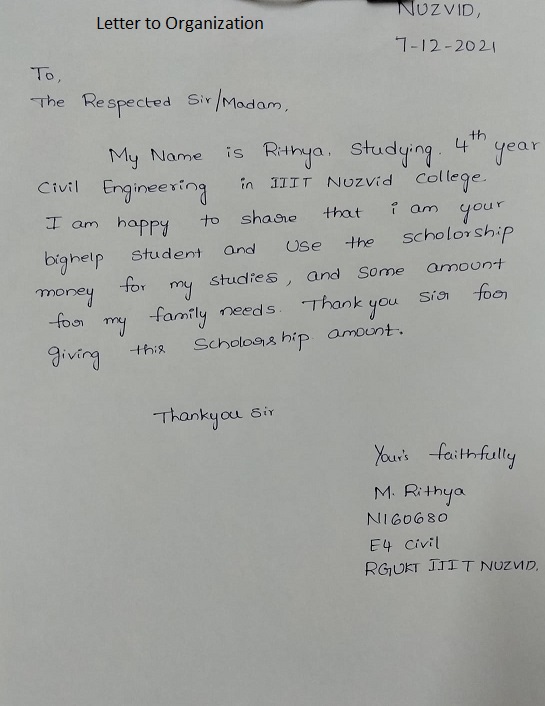 Letter to Organization
NUZVID,
7-12-2021
To,
The Respected Sir/Madam,
My Name is Rithya. Studying. 4th year
Civil Engineering in IIIT Nuzvid College.
I am happy to share that i am your
bighelp student and Use the scholorship
money for my studies, and some amount
for my family needs. Thank you sir for
giving this Scholorship amount.
Thankyou Sir
Your's faithfully
M. Rithya
N160680
E4 Civil
RGUKT IIIT NUZVID.